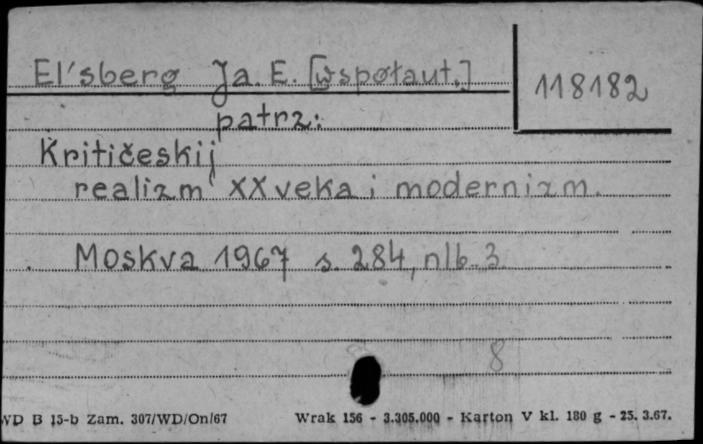 El'sberg Ja. E. [współaut.]
118182
patrz:
Kritičeskij
realizm XX veka i modernizm.
Moskva 1967 s. 284, nlb. 3
8
WD B 15-b Zam. 307/WD/On/67 Wrak 156 - 3.305.000 - Karton V kl. 180 g - 25. 3.67.